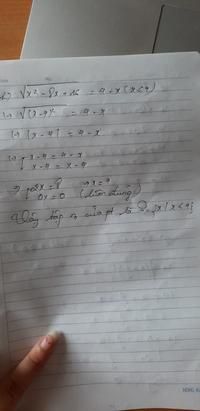 √x² - 8x + 16 = 4 - x (x ≤ 4)
⇔ √(x-4)² = 4 - x
⇔ |x - 4| = 4 - x
⇔ x - 4 = 4 - x
x - 4 = x - 4
⇔ 2x = 8 ⇔ x = 4
0x = 0 (luôn đúng)
Vậy tập n₀ của pt là S = {x | x ≤ 4}